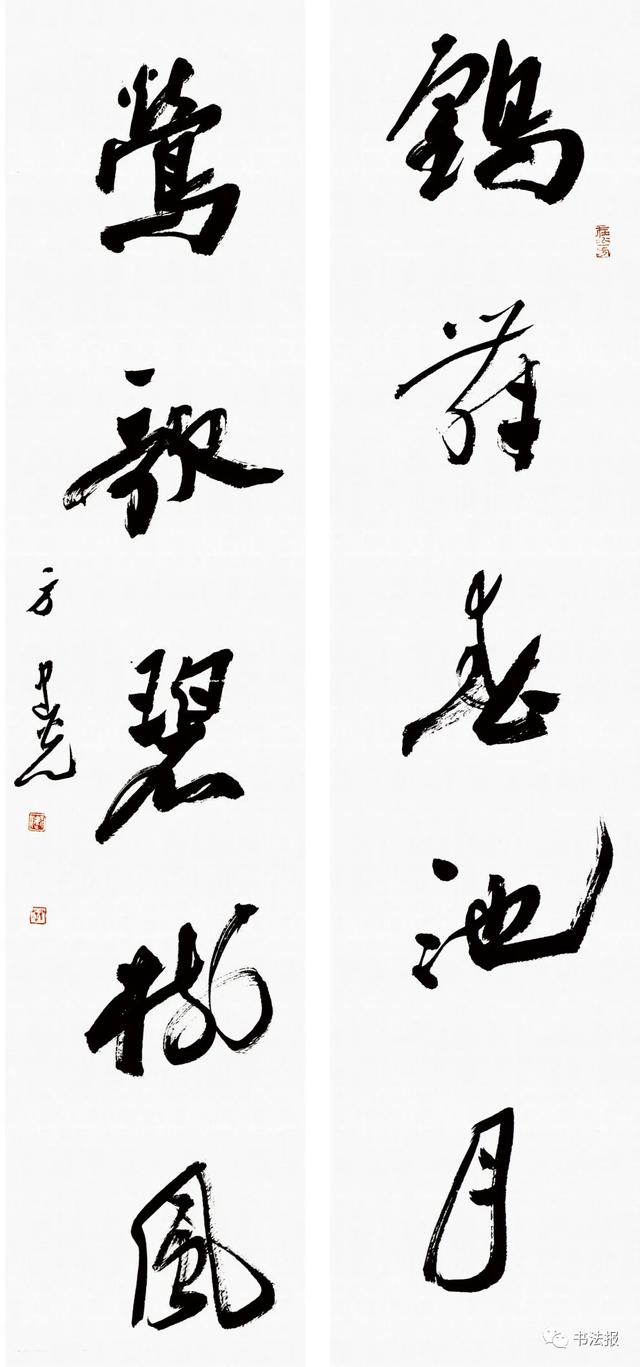 鶴舞春池月
鶯歌碧樹風
方
书法报